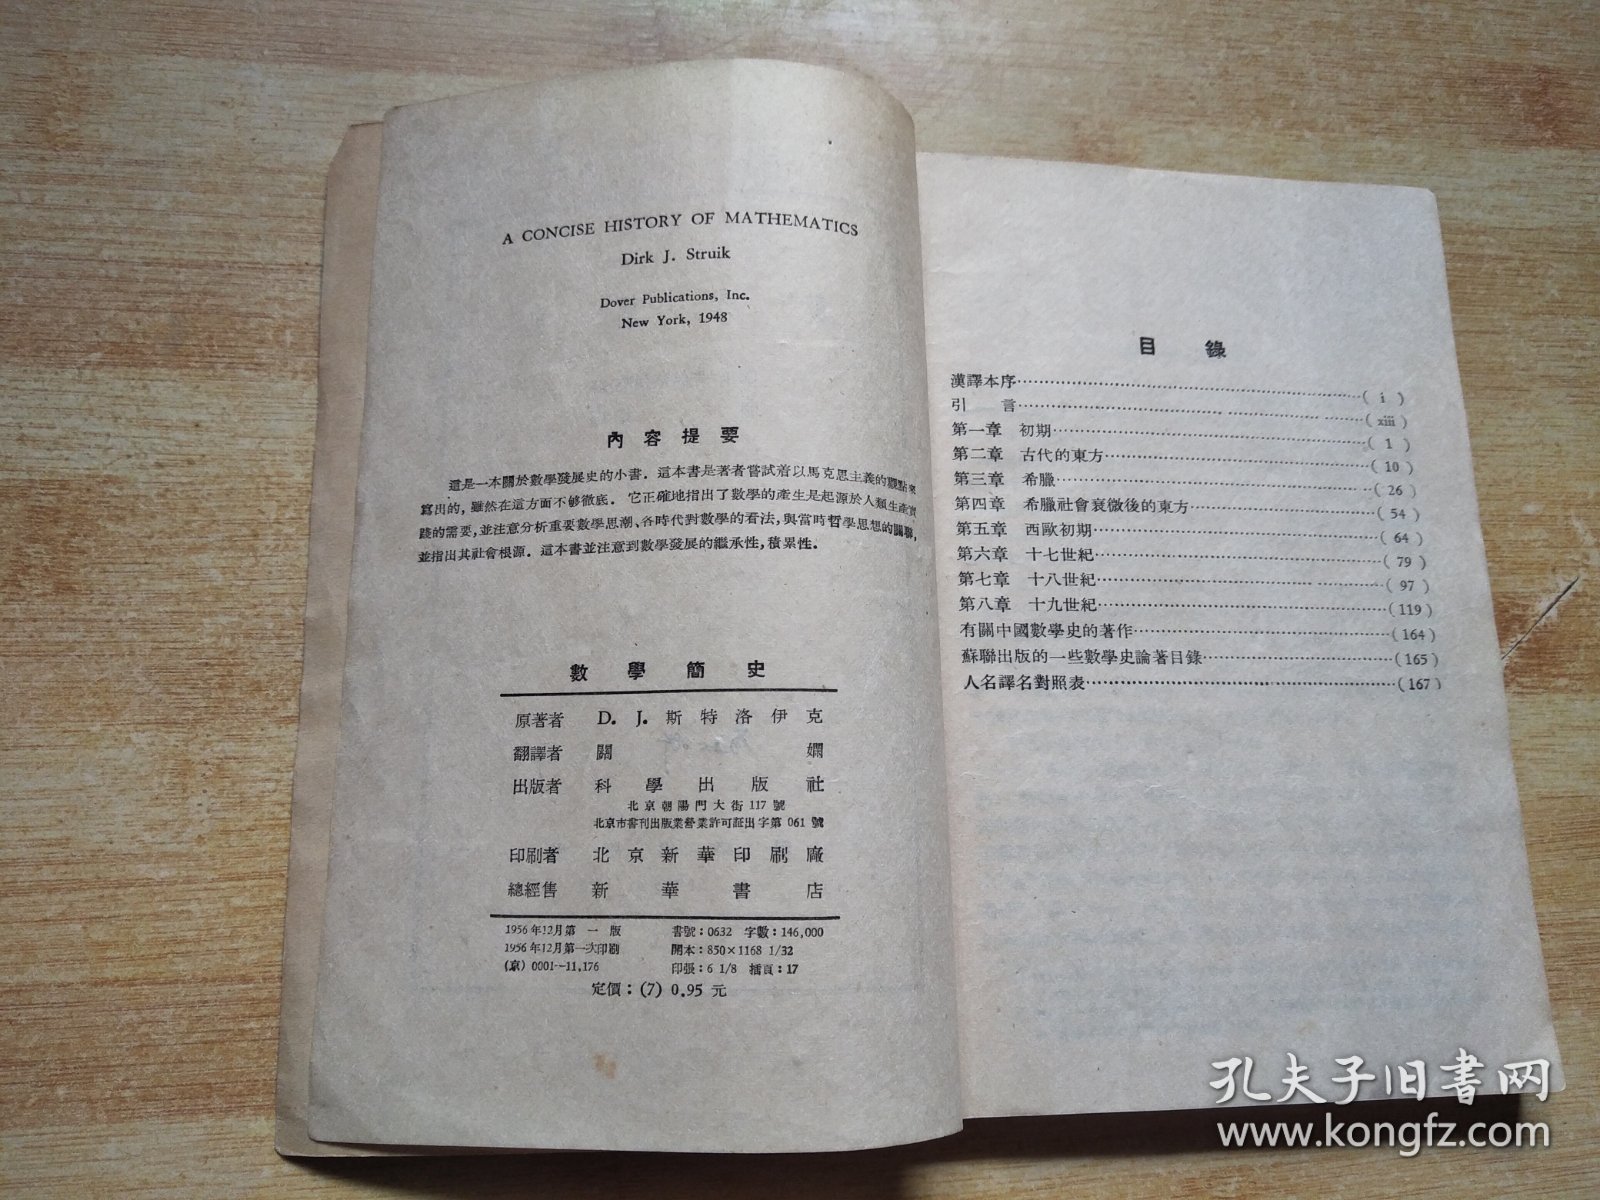 A CONCISE HISTORY OF MATHEMATICS
Dirk J. Struik
Dover Publications, Inc.
New York, 1948
內容提要
這是一本關於數學發展史的小書．這本書是著者嘗試着以馬克思主義的觀點來
寫出的，雖然在這方面不够徹底．它正確地指出了數學的產生是起源於人類生產實
踐的需要，並注意分析重要數學思潮、各時代對數學的看法，與當時哲學思想的關聯，
並指出其社會根源．這本書並注意到數學發展的繼承性，積累性．
數學簡史
原著者 D. J. 斯特洛伊克
翻譯者 關嫻
出版者 科學出版社
北京朝陽門大街 117 號
北京市書刊出版業營業許可証出字第 061 號
印刷者 北京新華印刷廠
總經售 新華書店
1956年12月第一版 書號：0632 字數：146,000
1956年12月第一次印刷 開本：850×1168 1/32
(京) 0001—11,176 印張：6 1/8 插頁：17
定價：(7) 0.95 元
目錄
漢譯本序……(i)
引言……(xiii)
第一章 初期……(1)
第二章 古代的東方……(10)
第三章 希臘……(26)
第四章 希臘社會衰微後的東方……(54)
第五章 西歐初期……(64)
第六章 十七世紀……(79)
第七章 十八世紀……(97)
第八章 十九世紀……(119)
有關中國數學史的著作……(164)
蘇聯出版的一些數學史論著目錄……(165)
人名譯名對照表……(167)
孔夫子旧書网
www.kongfz.com